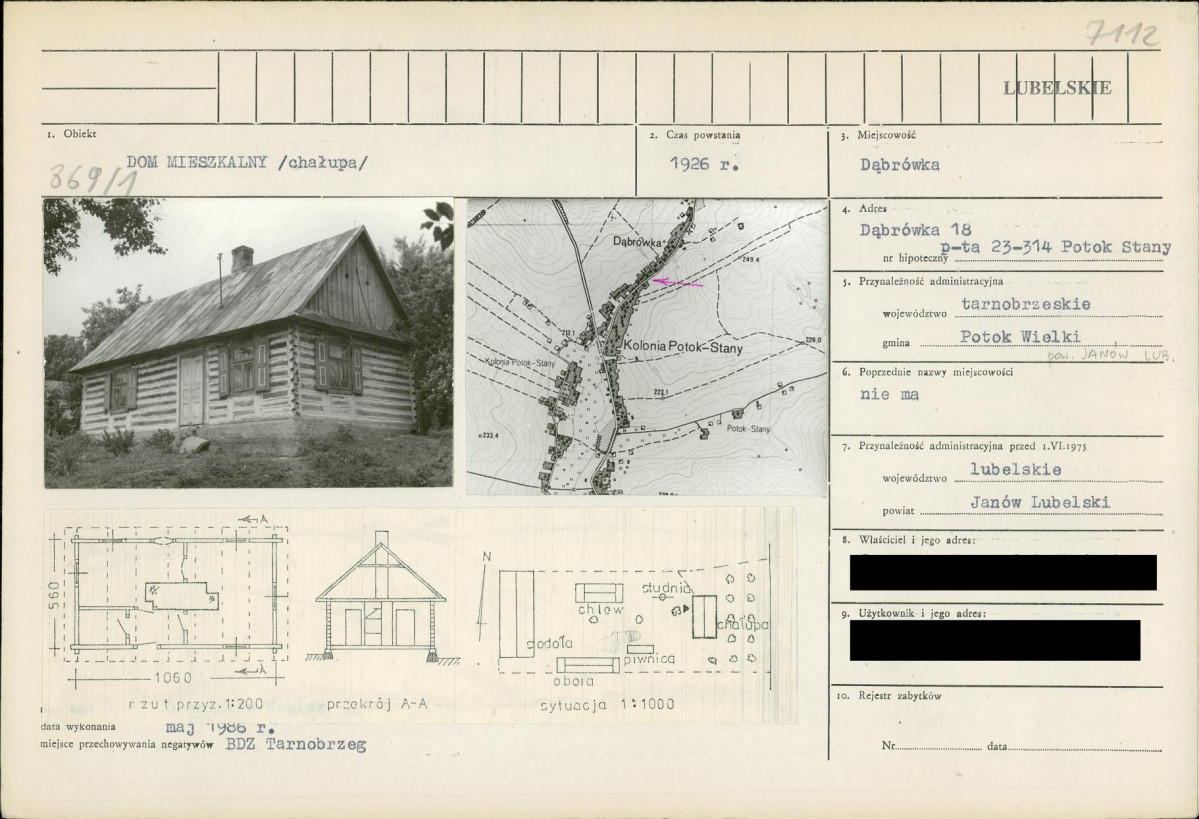 7112
LUBELSKIE
1. Obiekt
DOM MIESZKALNY /chałupa/
869/1
2. Czas powstania
1926 r.
3. Miejscowość
Dąbrówka
4. Adres
Dąbrówka 18
p-ta 23-314 Potok Stany
nr hipoteczny
5. Przynależność administracyjna
województwo tarnobrzeskie
gmina Potok Wielki
pow. JANÓW LUB.
6. Poprzednie nazwy miejscowości
nie ma
7. Przynależność administracyjna przed 1.VI.1975
województwo lubelskie
powiat Janów Lubelski
8. Właściciel i jego adres:
9. Użytkownik i jego adres:
10. Rejestr zabytków
Nr data
Dąbrówka
249,4
213,1
Kolonia Potok-Stany
226,0
Kolonia Potok-Stany
222,1
Potok-Stany
233,4
A
560
1060
A
rzut przyz. 1:200
przekrój A-A
N
stodoła
chlew
studnia
chałupa
piwnica
obora
sytuacja 1:1000
data wykonania maj 1986 r.
miejsce przechowywania negatywów BDZ Tarnobrzeg